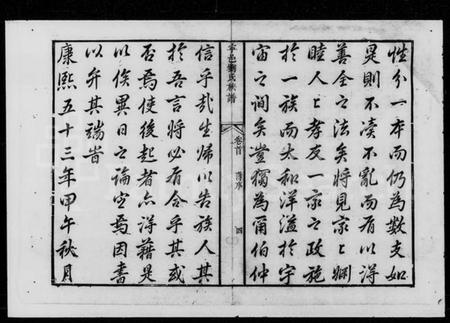 性分一本而仍為數支如
是則不凌不亂而有以得
善全之法矣將見家々嫻
睦人々孝友一家之政施
於一族而太和洋溢於宇
宙之間矣豈獨為爾伯仲
邑劉氏族譜
卷首
四
信乎哉生歸以告族人其
於吾言將必有合乎其或
否焉使後起者亦得藉是
以俟異日之論定焉因書
以弁其端旹
康熙五十三年甲午秋月